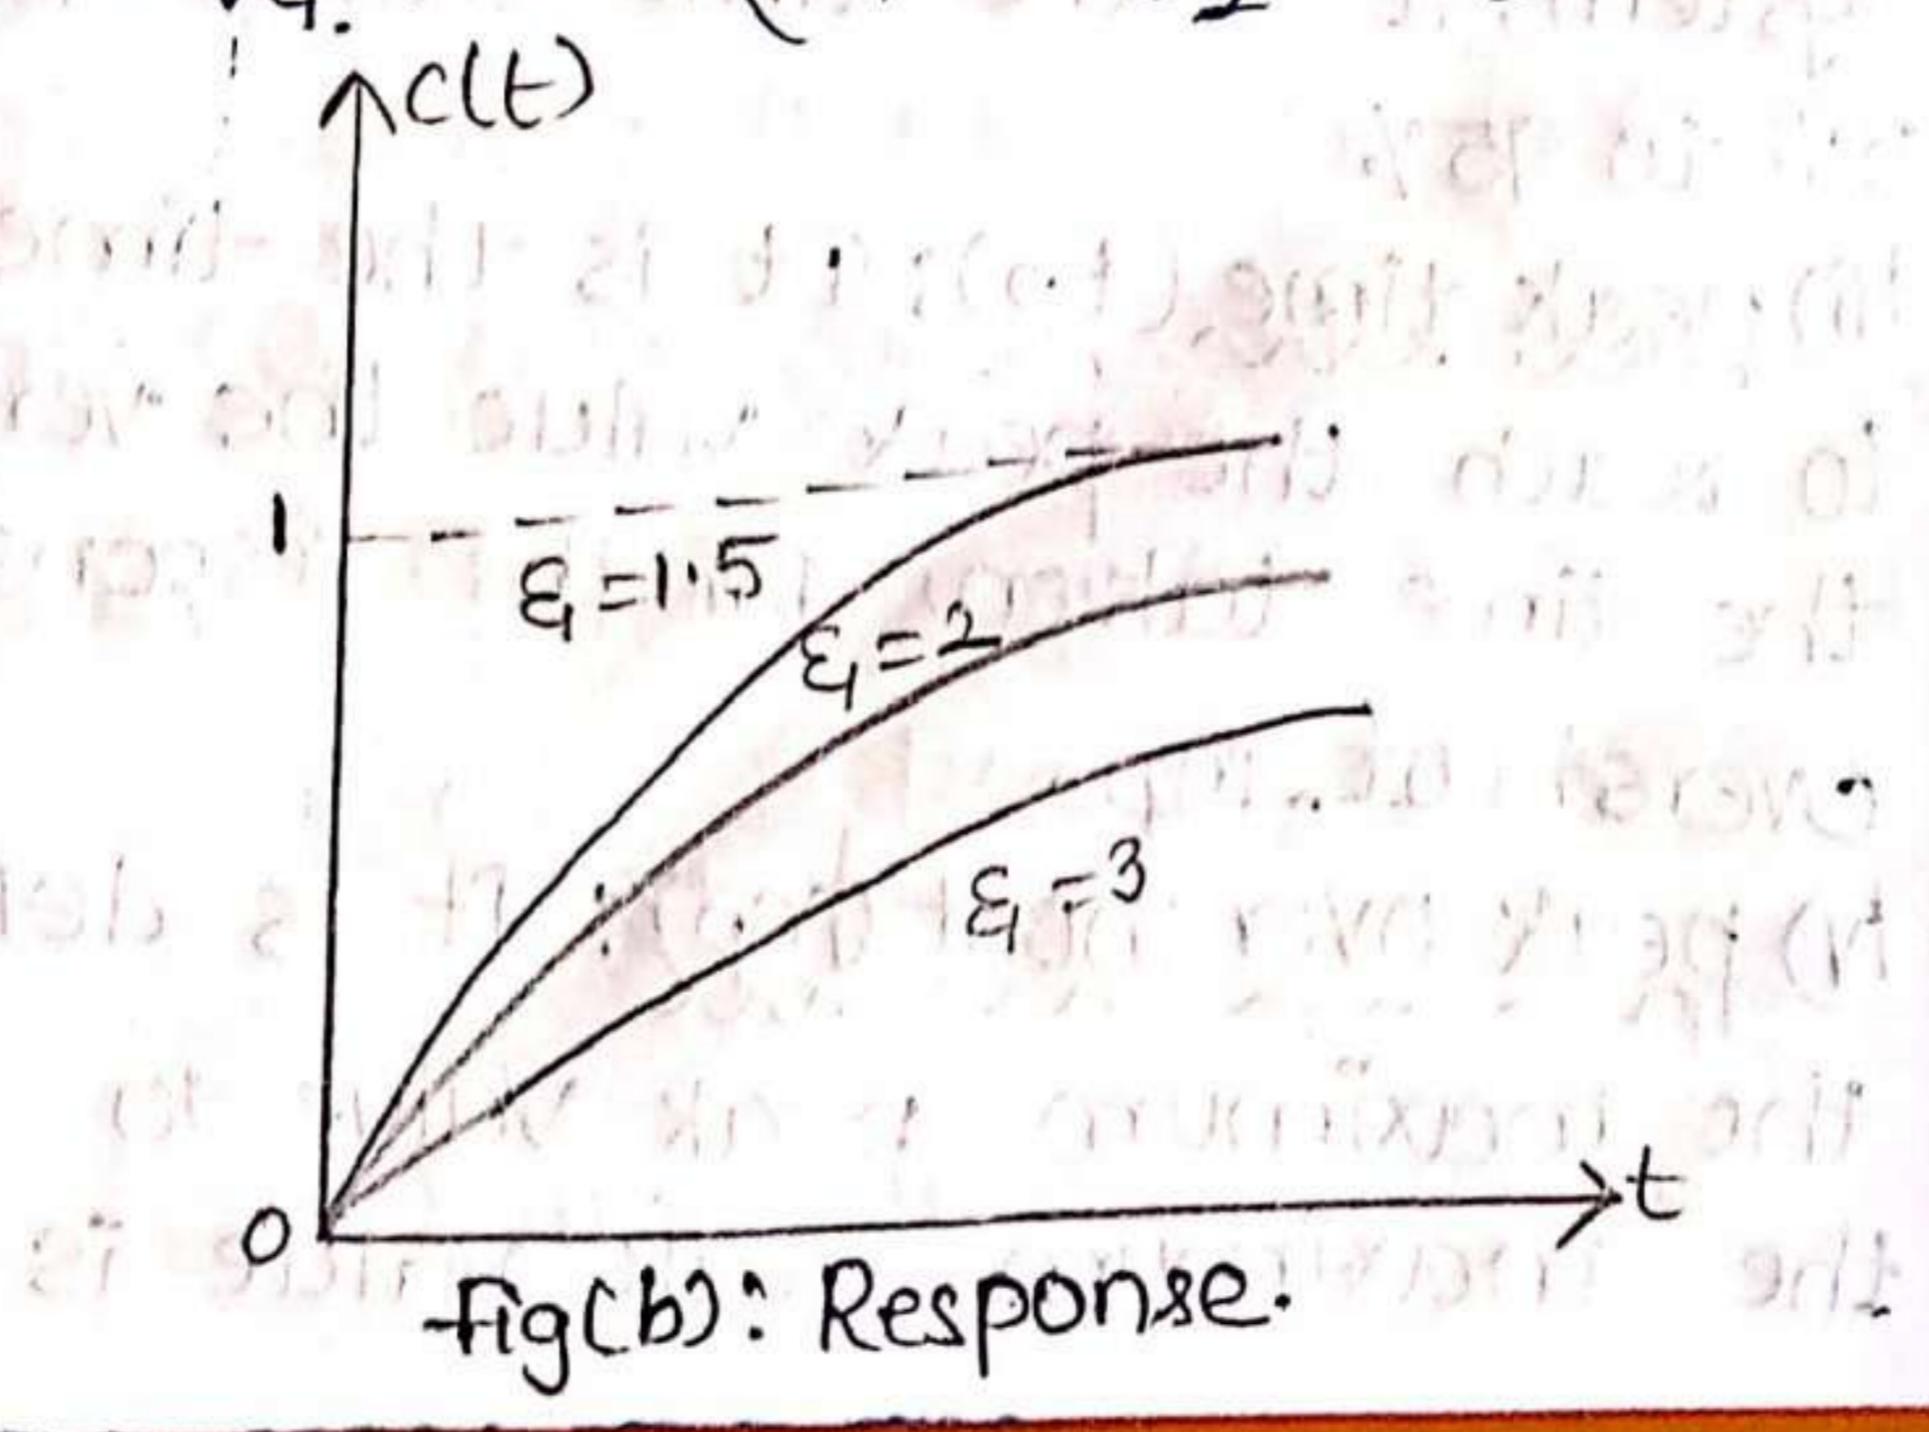 c(t)
1
ξ=1.5
ξ=2
ξ=3
0
t
fig(b): Response.